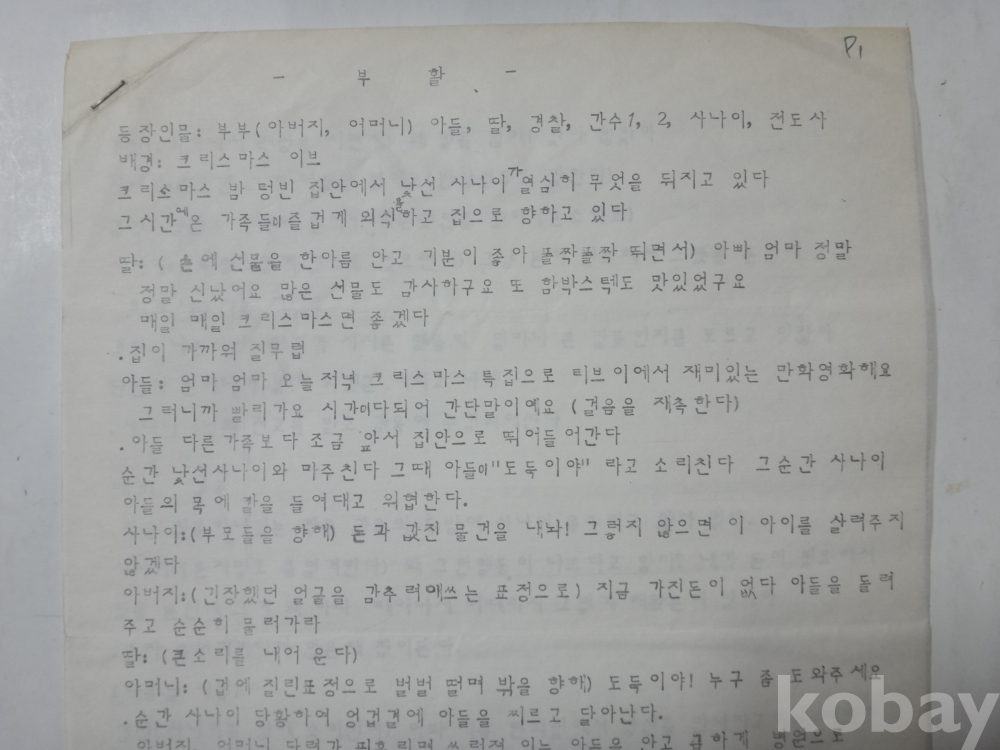 P1
- 부 활 -
등장인물: 부부(아버지, 어머니) 아들, 딸, 경찰, 간수1, 2, 사나이, 전도사
배경: 크리스마스 이브
크리스마스 밤 텅빈 집안에서 낯선 사나이가 열심히 무엇을 뒤지고 있다
그시간에 온 가족들이 즐겁게 외식을 하고 집으로 향하고 있다
딸: ( 손에 선물을 한아름 안고 기분이 좋아 폴짝폴짝 뛰면서) 아빠 엄마 정말
정말 신났어요 많은 선물도 감사하구요 또 함박스텍도 맛있었구요
매일 매일 크리스마스면 좋겠다
.집이 가까워 질무렵
아들: 엄마 엄마 오늘저녁 크리스마스 특집으로 티브이에서 재미있는 만화영화해요
그러니까 빨리가요 시간이다되어 간단말이예요 (걸음을 재촉한다)
.아들 다른가족보다 조금 앞서 집안으로 뛰어들어간다
순간 낯선사나이와 마주친다 그때 아들이"도둑이야" 라고 소리친다 그순간 사나이
아들의 목에 칼을 들여대고 위협한다.
사나이:(부모들을 향해) 돈과 값진 물건을 내놔! 그렇지 않으면 이 아이를 살려주지
않겠다
아버지:(긴장했던 얼굴을 감추려애쓰는 표정으로) 지금 가진돈이 없다 아들을 돌려
주고 순순히 물러가라
딸: (큰소리를 내어 운다)
어머니: (겁에 질린표정으로 벌벌 떨며 밖을 향해) 도둑이야! 누구 좀 도와주세요
.순간 사나이 당황하여 엉겁결에 아들을 찌르고 달아난다.
아버지 어머니 달려가 피흘리며 쓰러져 있는 아들을 안고 급하게 병원으로
kobay